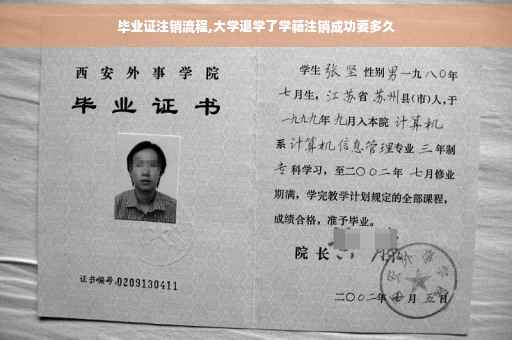 毕业证注销流程,大学退学了学藉注销成功要多久
西安外事学院
毕业证书
证书编号:0209130411
学生张坚性别男一九八〇年
七月生,江苏省苏州县(市)人,于
一九九九年九月入本院计算机
系计算机信息管理专业三年制
专科学习,至二〇〇二年七月修业
期满,学完教学计划规定的全部课程,
成绩合格,准予毕业。
院长
二〇〇二年七月五日